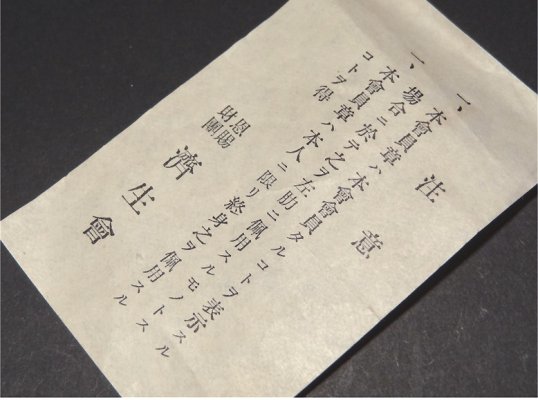 注意
一、本會員章ハ本會會員タルコトヲ表示スル
場合ニ於テ之ヲ左肋ニ佩用スルモノトス
一、本會員章ハ本人ニ限リ終身之ヲ佩用スル
コトヲ得
恩賜
財團
濟生會